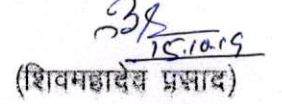 15.10.19
(शिवमहादेव प्रसाद)